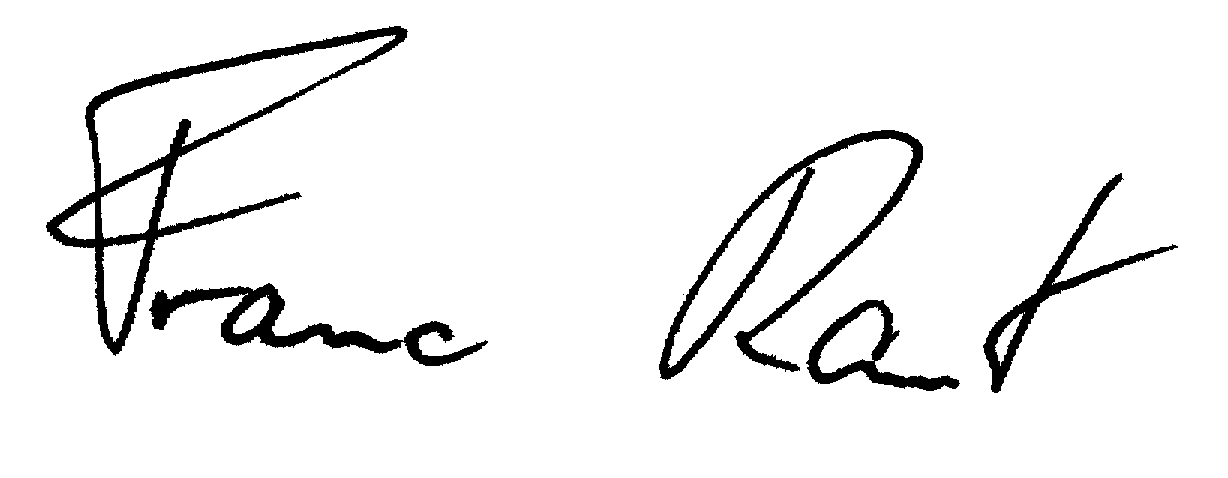 Franc Rant